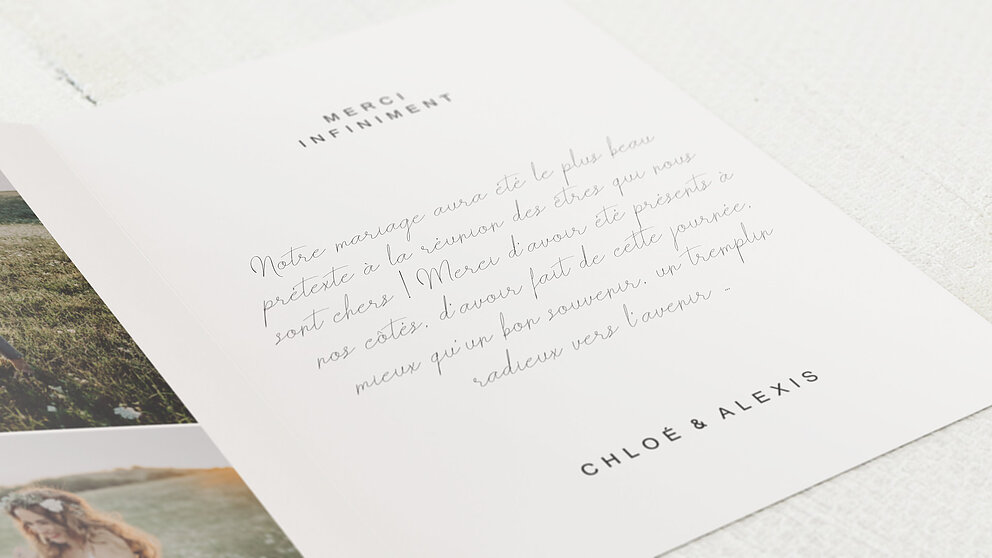 MERCI
INFINIMENT
Notre mariage aura été le plus beau
prétexte à la réunion des êtres qui nous
sont chers ! Merci d'avoir été présents à
nos côtés, d'avoir fait de cette journée,
mieux qu'un bon souvenir, un tremplin
radieux vers l'avenir -
CHLOÉ & ALEXIS